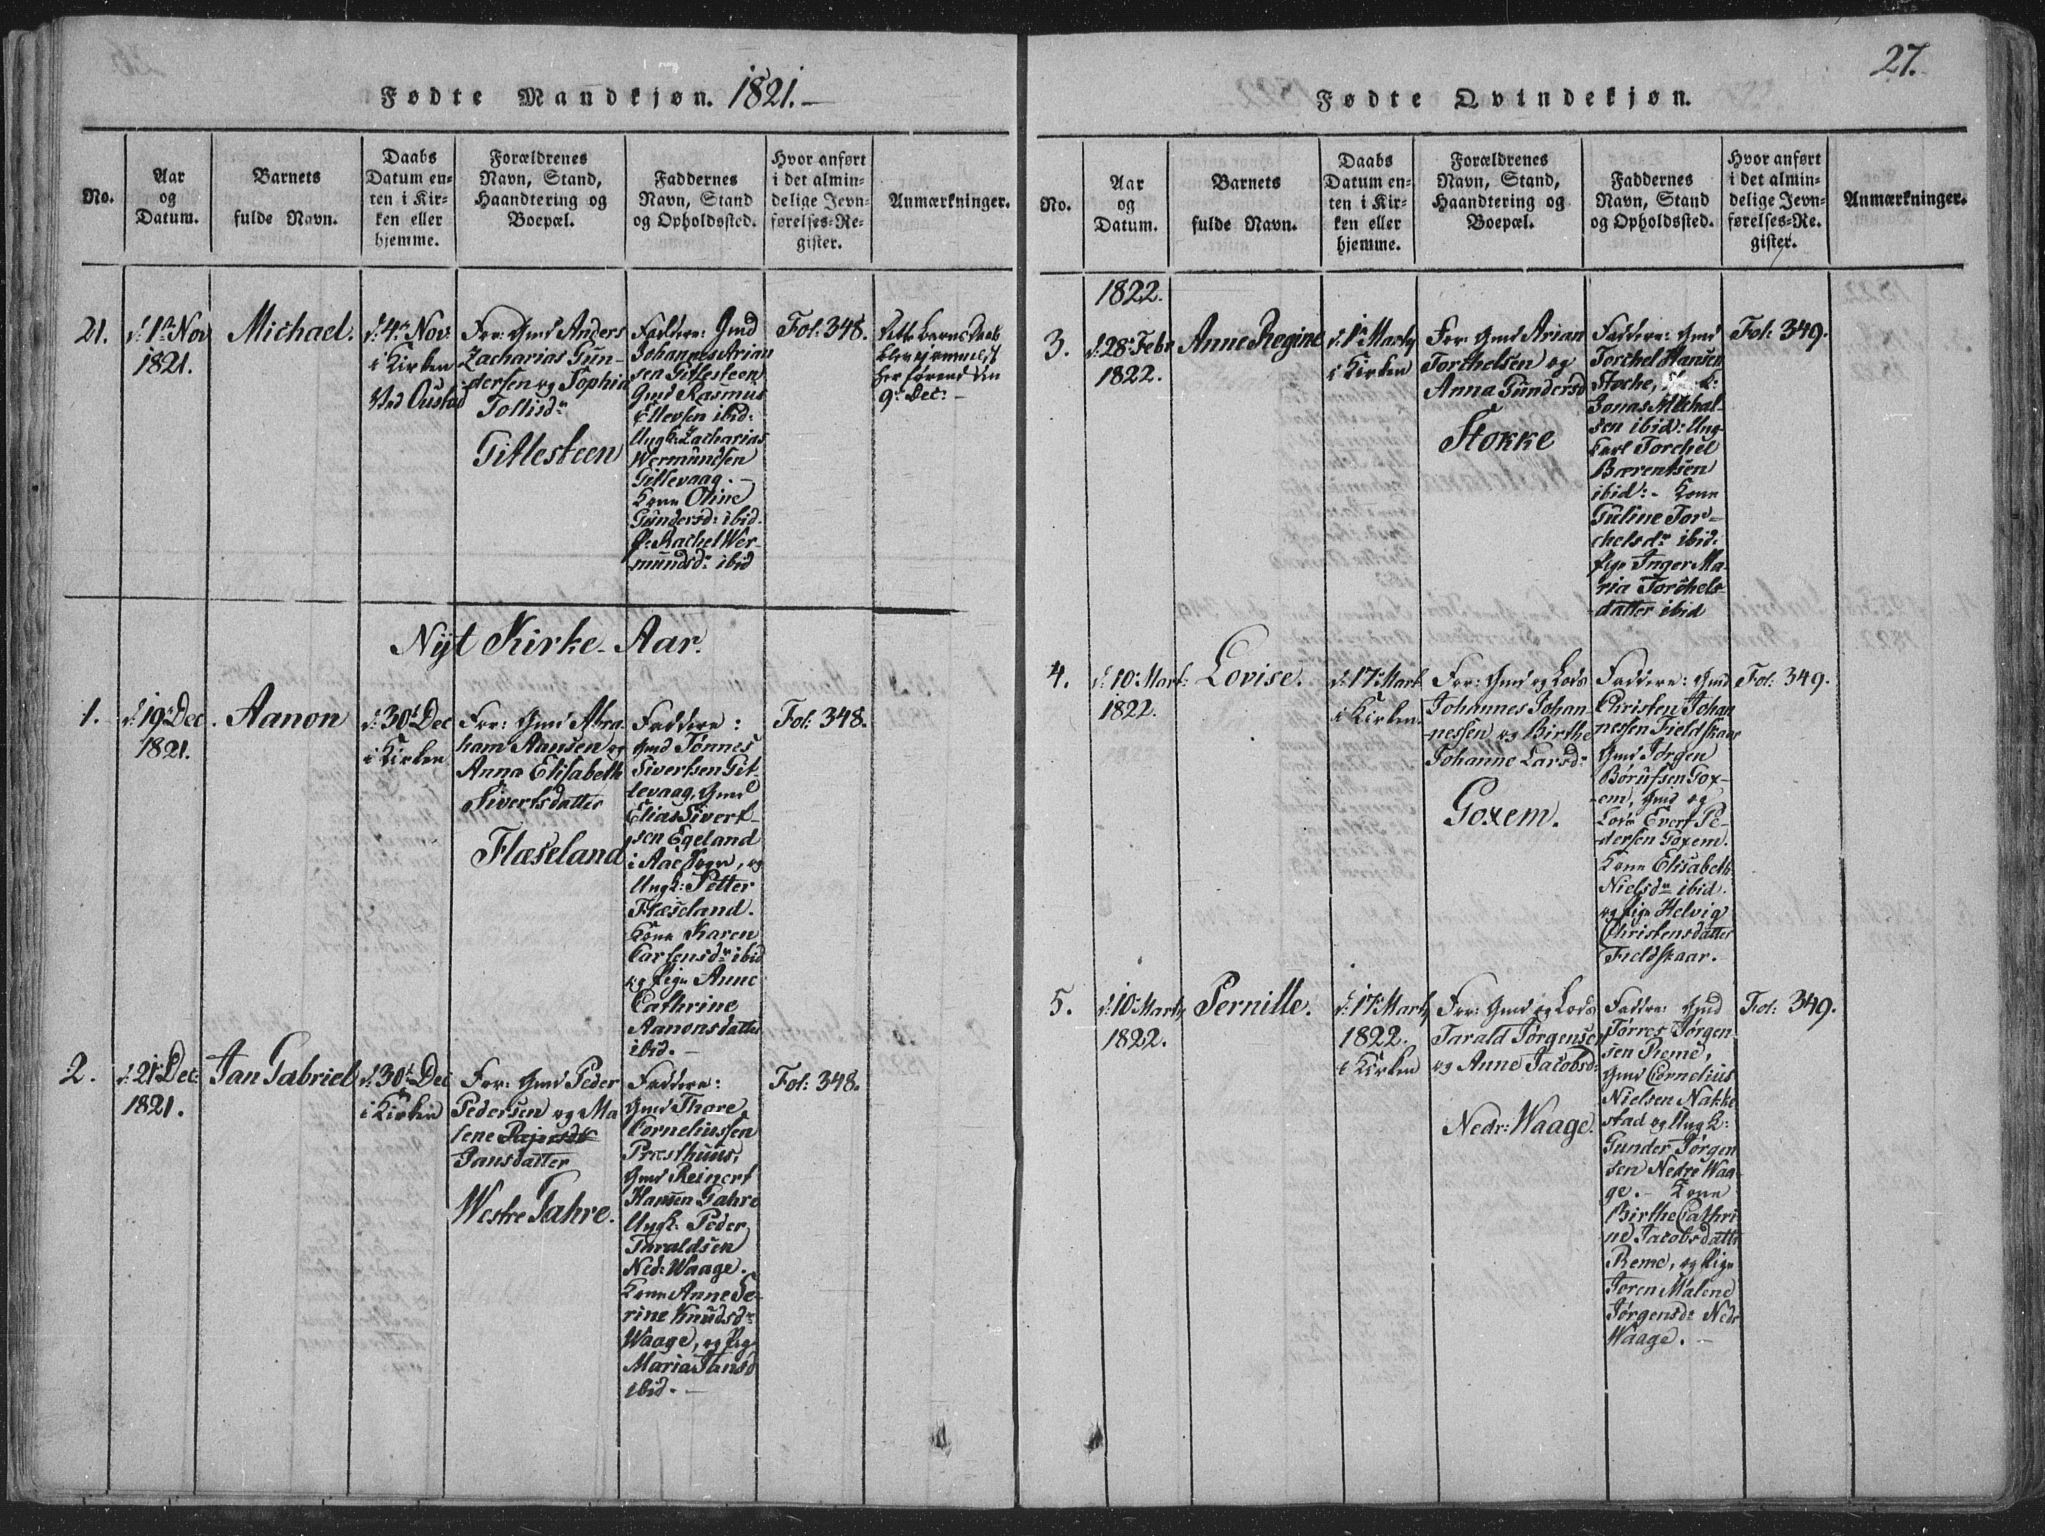 Fødte Mandkjøn. 1821.
No.
Aar
og
Datum.
Barnets
fulde Navn.
Daabs
Datum en-
ten i Kir-
ken eller
hjemme.
Forældrenes
Navn, Stand,
Haandtering og
Boepæl.
Faddernes
Navn, Stand
og Opholdssted.
Hvor anført
i det almin-
delige Jevn-
førelses-Re-
gister.
Anmærkninger.
21.
d: 1ste Nov
1821.
Michael.
d: 4de Nov
i Kirken
Ved Oustad
For: Gmd Anders
Zacharias Gun-
dersen og Sophia
Tollisdr
Gitlesteen
Faddere: Gmd
Johannes Arian
sen Gitlesteen
Gmd Rasmus
Ellevsen ibid:
Ungk: Zacharias
Wermundsen
Gitlevaag.
Kone Oline
Gundersd: ibid.
P: Rachel Wer-
mundsd: ibid
Fol: 348.
Dette Barns Daab
blev ei anmeldt
her førend den
9de Dec:
Nyt Kirke-Aar.
1.
d: 19de Dec.
1821.
Aanon
d: 30te Dec
i Kirken
For: Gmd Abra-
ham Aansen og
Anna Elisabeth
Sivertsdatter
Flæseland
Faddere:
Gmd Tønnes
Sivertsen Git-
levaag, Gmd
Elias Sivert-
sen Egeland
i Aae Sogn, og
Ungk: Petter
Flæseland.
Kone Karen
Carlensdr ibid
og Pige Anne
Cathrine
Aanonsdatter
ibid.
Fol: 348.
2.
d: 21de Dec:
1821.
Jan Gabriel
d: 30te Dec
i Kirken
For: Gmd Peder
Pedersen og Ma
lene
Jansdatter
Westre Jahre.
Faddere:
Gmd Thore
Corneliussen
Præsthuus,
Gmd Reinert
Hansen Jahre
Ungk: Peder
Taraldsen
Ned: Waage.
Kone Anne Se-
rine Knudsdr
Waage, og Pige
Maria Jansd
ibid.
Fol: 348.
27.
Fødte Qvindekjøn.
No.
Aar
og
Datum.
Barnets
fulde Navn.
Daabs
Datum en-
ten i Kir-
ken eller
hjemme.
Forældrenes
Navn, Stand,
Haandtering og
Boepæl.
Faddernes
Navn, Stand
og Opholdssted.
Hvor anført
i det almin-
delige Jevn-
førelses-Re-
gister.
Anmærkninger.
1822.
3.
d: 28de Febr
1822.
Anne Regine
d: 1ste Marty
i Kirken
For: Gmd Arian
Torchelsen og
Anna Gundersd
Stokke
Faddere: Gmd
Torchel Hansen
Stoche,
Jonas Michal-
sen ibid: Ung
Karl Torchel
Bærentsen
ibid:- Kone
Guline Tor-
chelsdr ibid.
Pige Inger Ma-
ria Torchels-
datter ibid
Fol: 349.
4.
d: 10 Mart:
1822.
Lovise.
d: 17 Mart
i Kirken.
For: Gmd og Lods
Johannes Johan-
nessen og Birthe
Johanne Larsdr
Goxem.
Faddere: Gmd
Christen Johan
nessen Fieldskaar
Gmd Jørgen
Børufsen Gox-
em, Gmd og
Lods Evert Pe-
dersen Goxem.
Kone Elisabeth
Nielsdr ibid.
og Pige Helvig
Christensdatter
Fieldskaar.
Fol: 349.
5.
d: 10 Marty
1822.
Pernille.
d: 17 Marty
1822.
i Kirken
For: Gmd og Lods
Tarald Jørgensen
og Anne Jacobsd:
Nedr: Waage.
Faddre: Gmd
Torres Jørgen-
sen Reme,
Gmd Cornelius
Nielsen Nakke
stad og Ungk:
Gunder Jørgen
sen Nedre Waa-
ge.- Kone
Birthe Cathri-
ne Jacobsdatter
Reme, og Pige
Joren Malene
Jørgensd: Nedr
Waage.
Fol: 349.